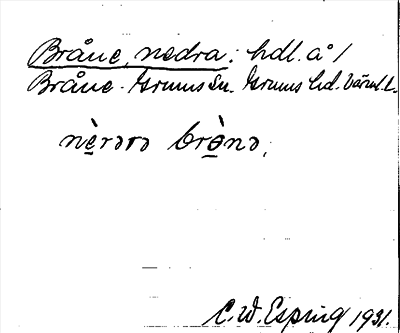 Bråne, nedra: hdl. å /
Bråne. Grums sn. Grums hd. Värml. L.
nèrərə brònə.
C. W. Esping 1931.